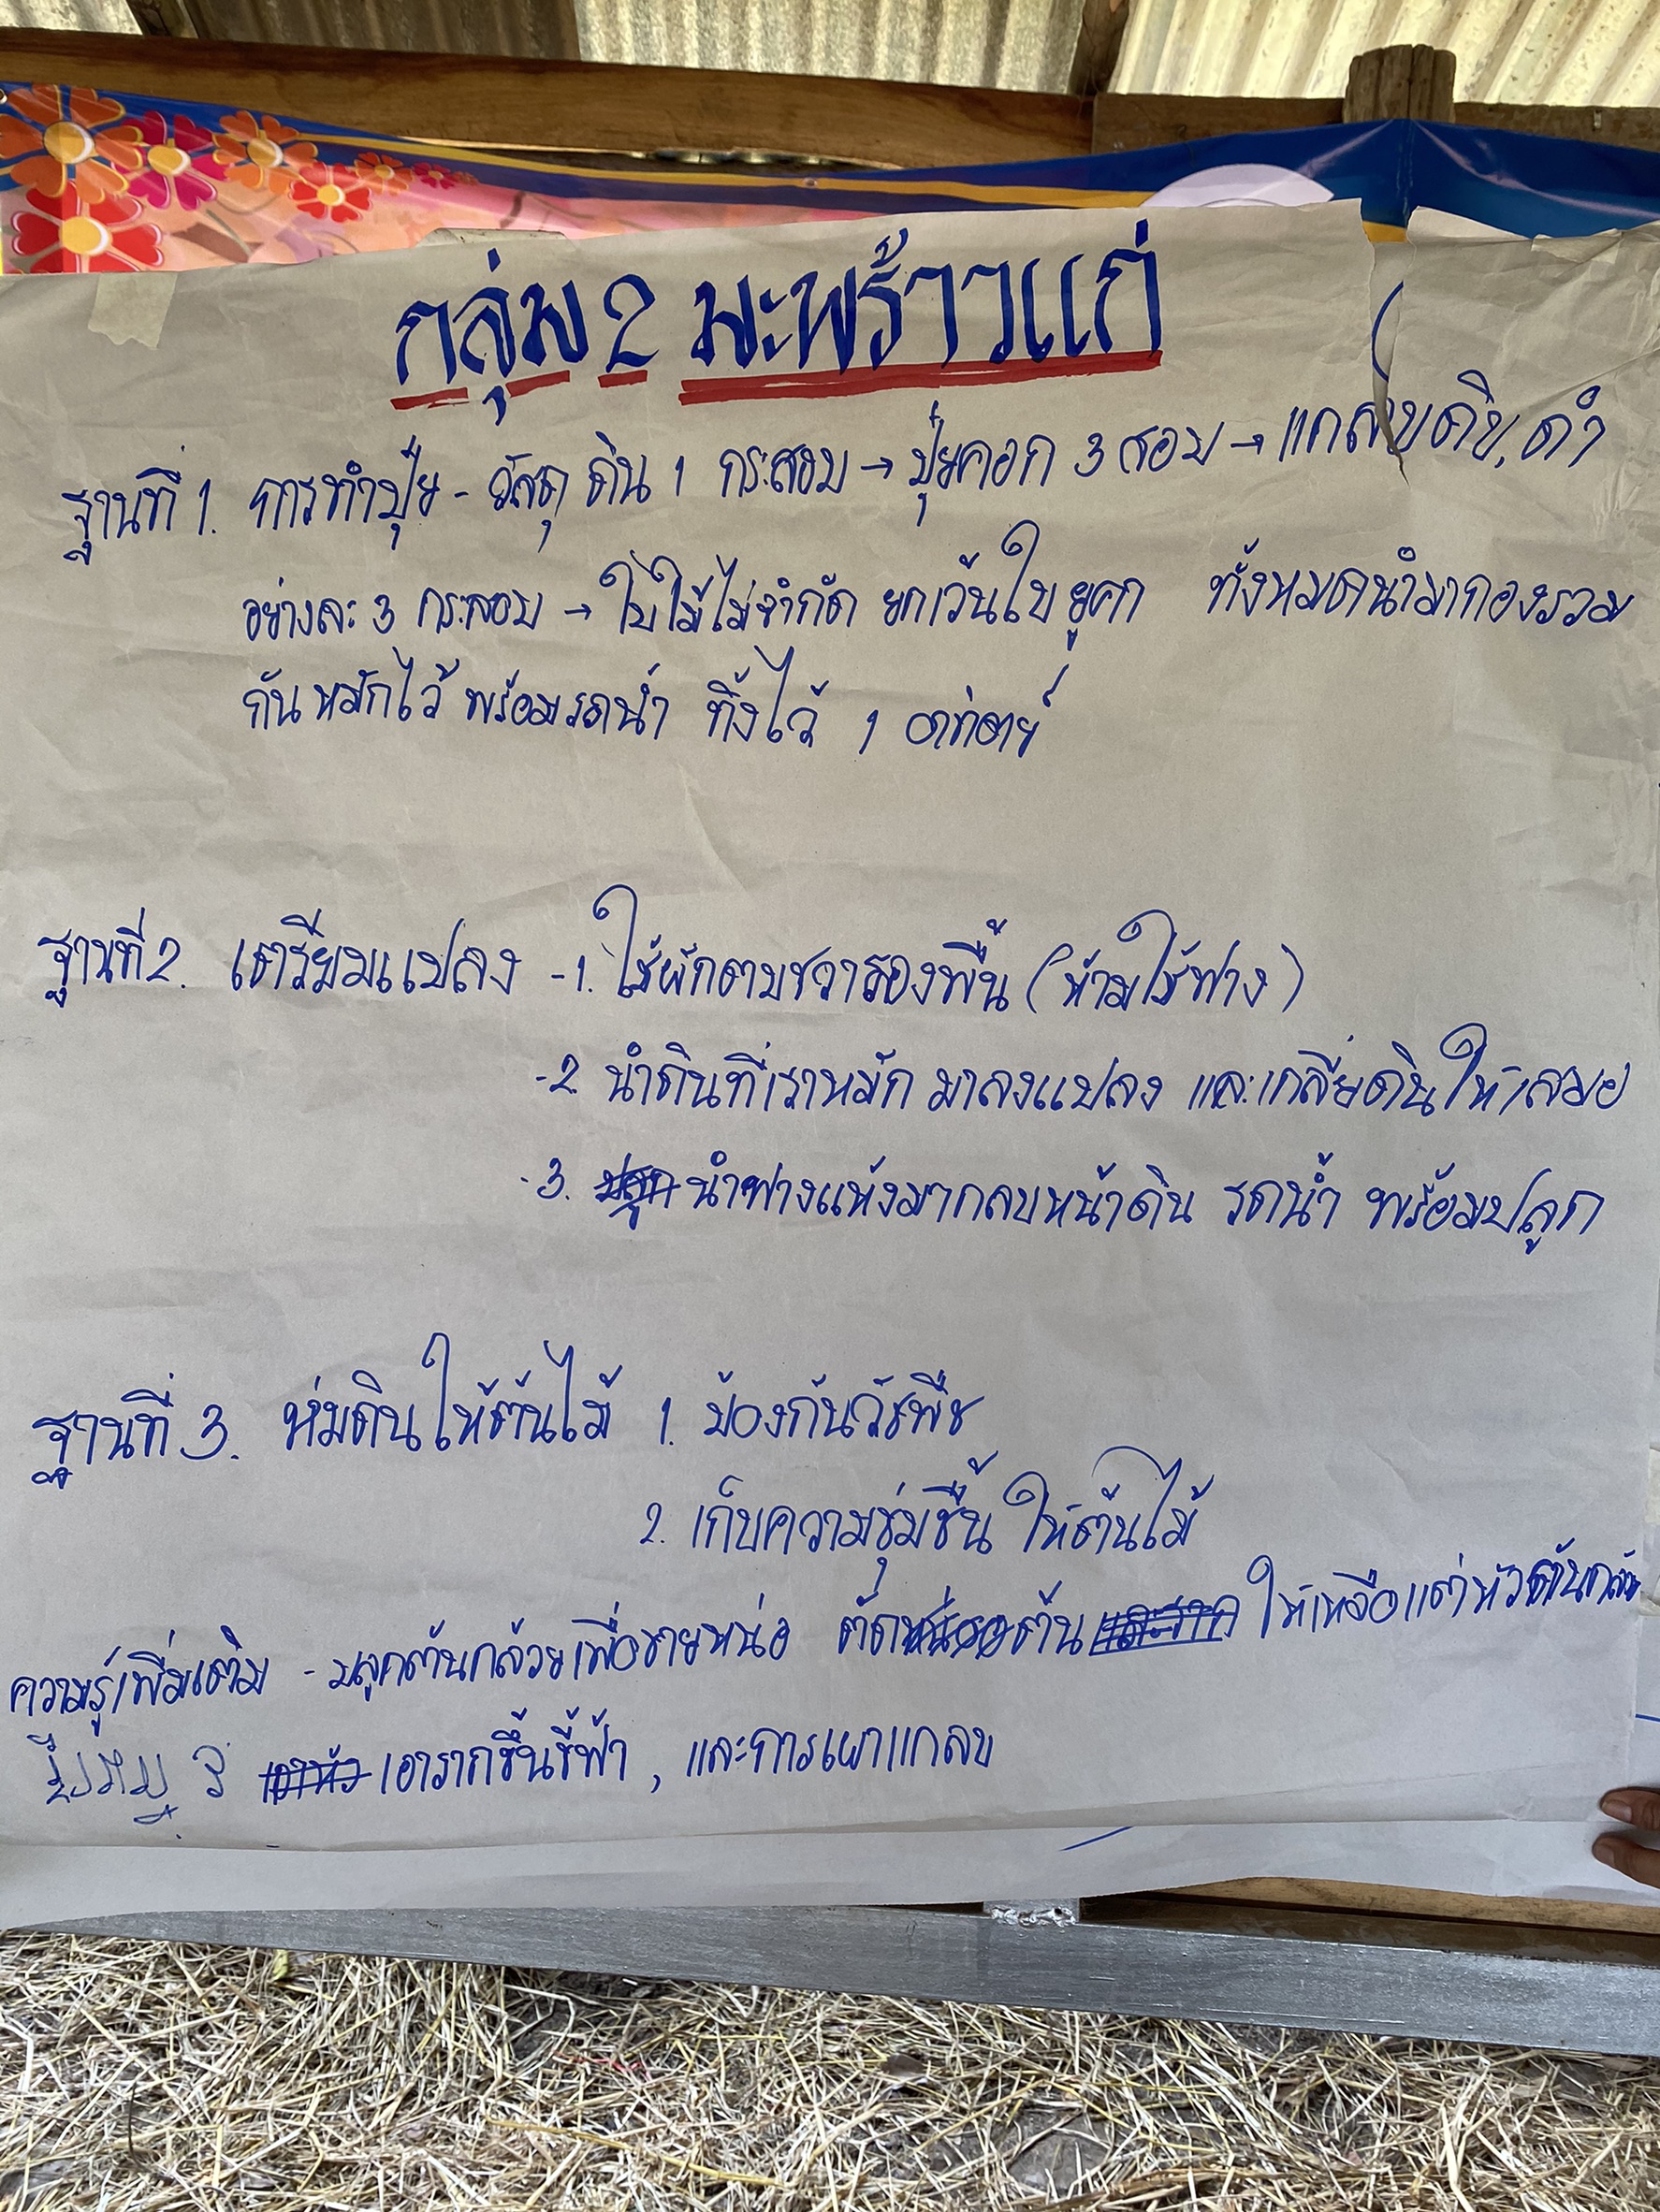 กลุ่ม 2 มะพร้าวแก่
ฐานที่ 1. การทำปุ๋ย - วัสดุ ดิน 1 กระสอบ → ปุ๋ยคอก 3 สอบ → แกลบดิบ, ดำ
อย่างละ 3 กระสอบ → ใบไม้ไม่จำกัด ยกเว้นใบยูคา ทั้งหมดนำมากองรวม
กันหมักไว้ พร้อมรดน้ำ ทิ้งไว้ 1 อาทิตย์
ฐานที่ 2. เตรียมแปลง - 1. ใช้ผักตบชวารองพื้น (ห้ามใช้ฟาง)
- 2. นำดินที่เราหมัก มาลงแปลง และเกลี่ยดินให้เสมอ
- 3. นำฟางแห้งมากลบหน้าดิน รดน้ำ พร้อมปลูก
ฐานที่ 3. ห่มดินให้ต้นไม้ 1. ป้องกันวัชพืช
2. เก็บความชุ่มชื้น ให้ต้นไม้
ความรู้เพิ่มเติม - ปลูกต้นกล้วยเพื่อขายหน่อ ตัดต้น ให้เหลือแต่หัวต้นกล้วย
เอารากขึ้นชี้ฟ้า, และการเผาแกลบ